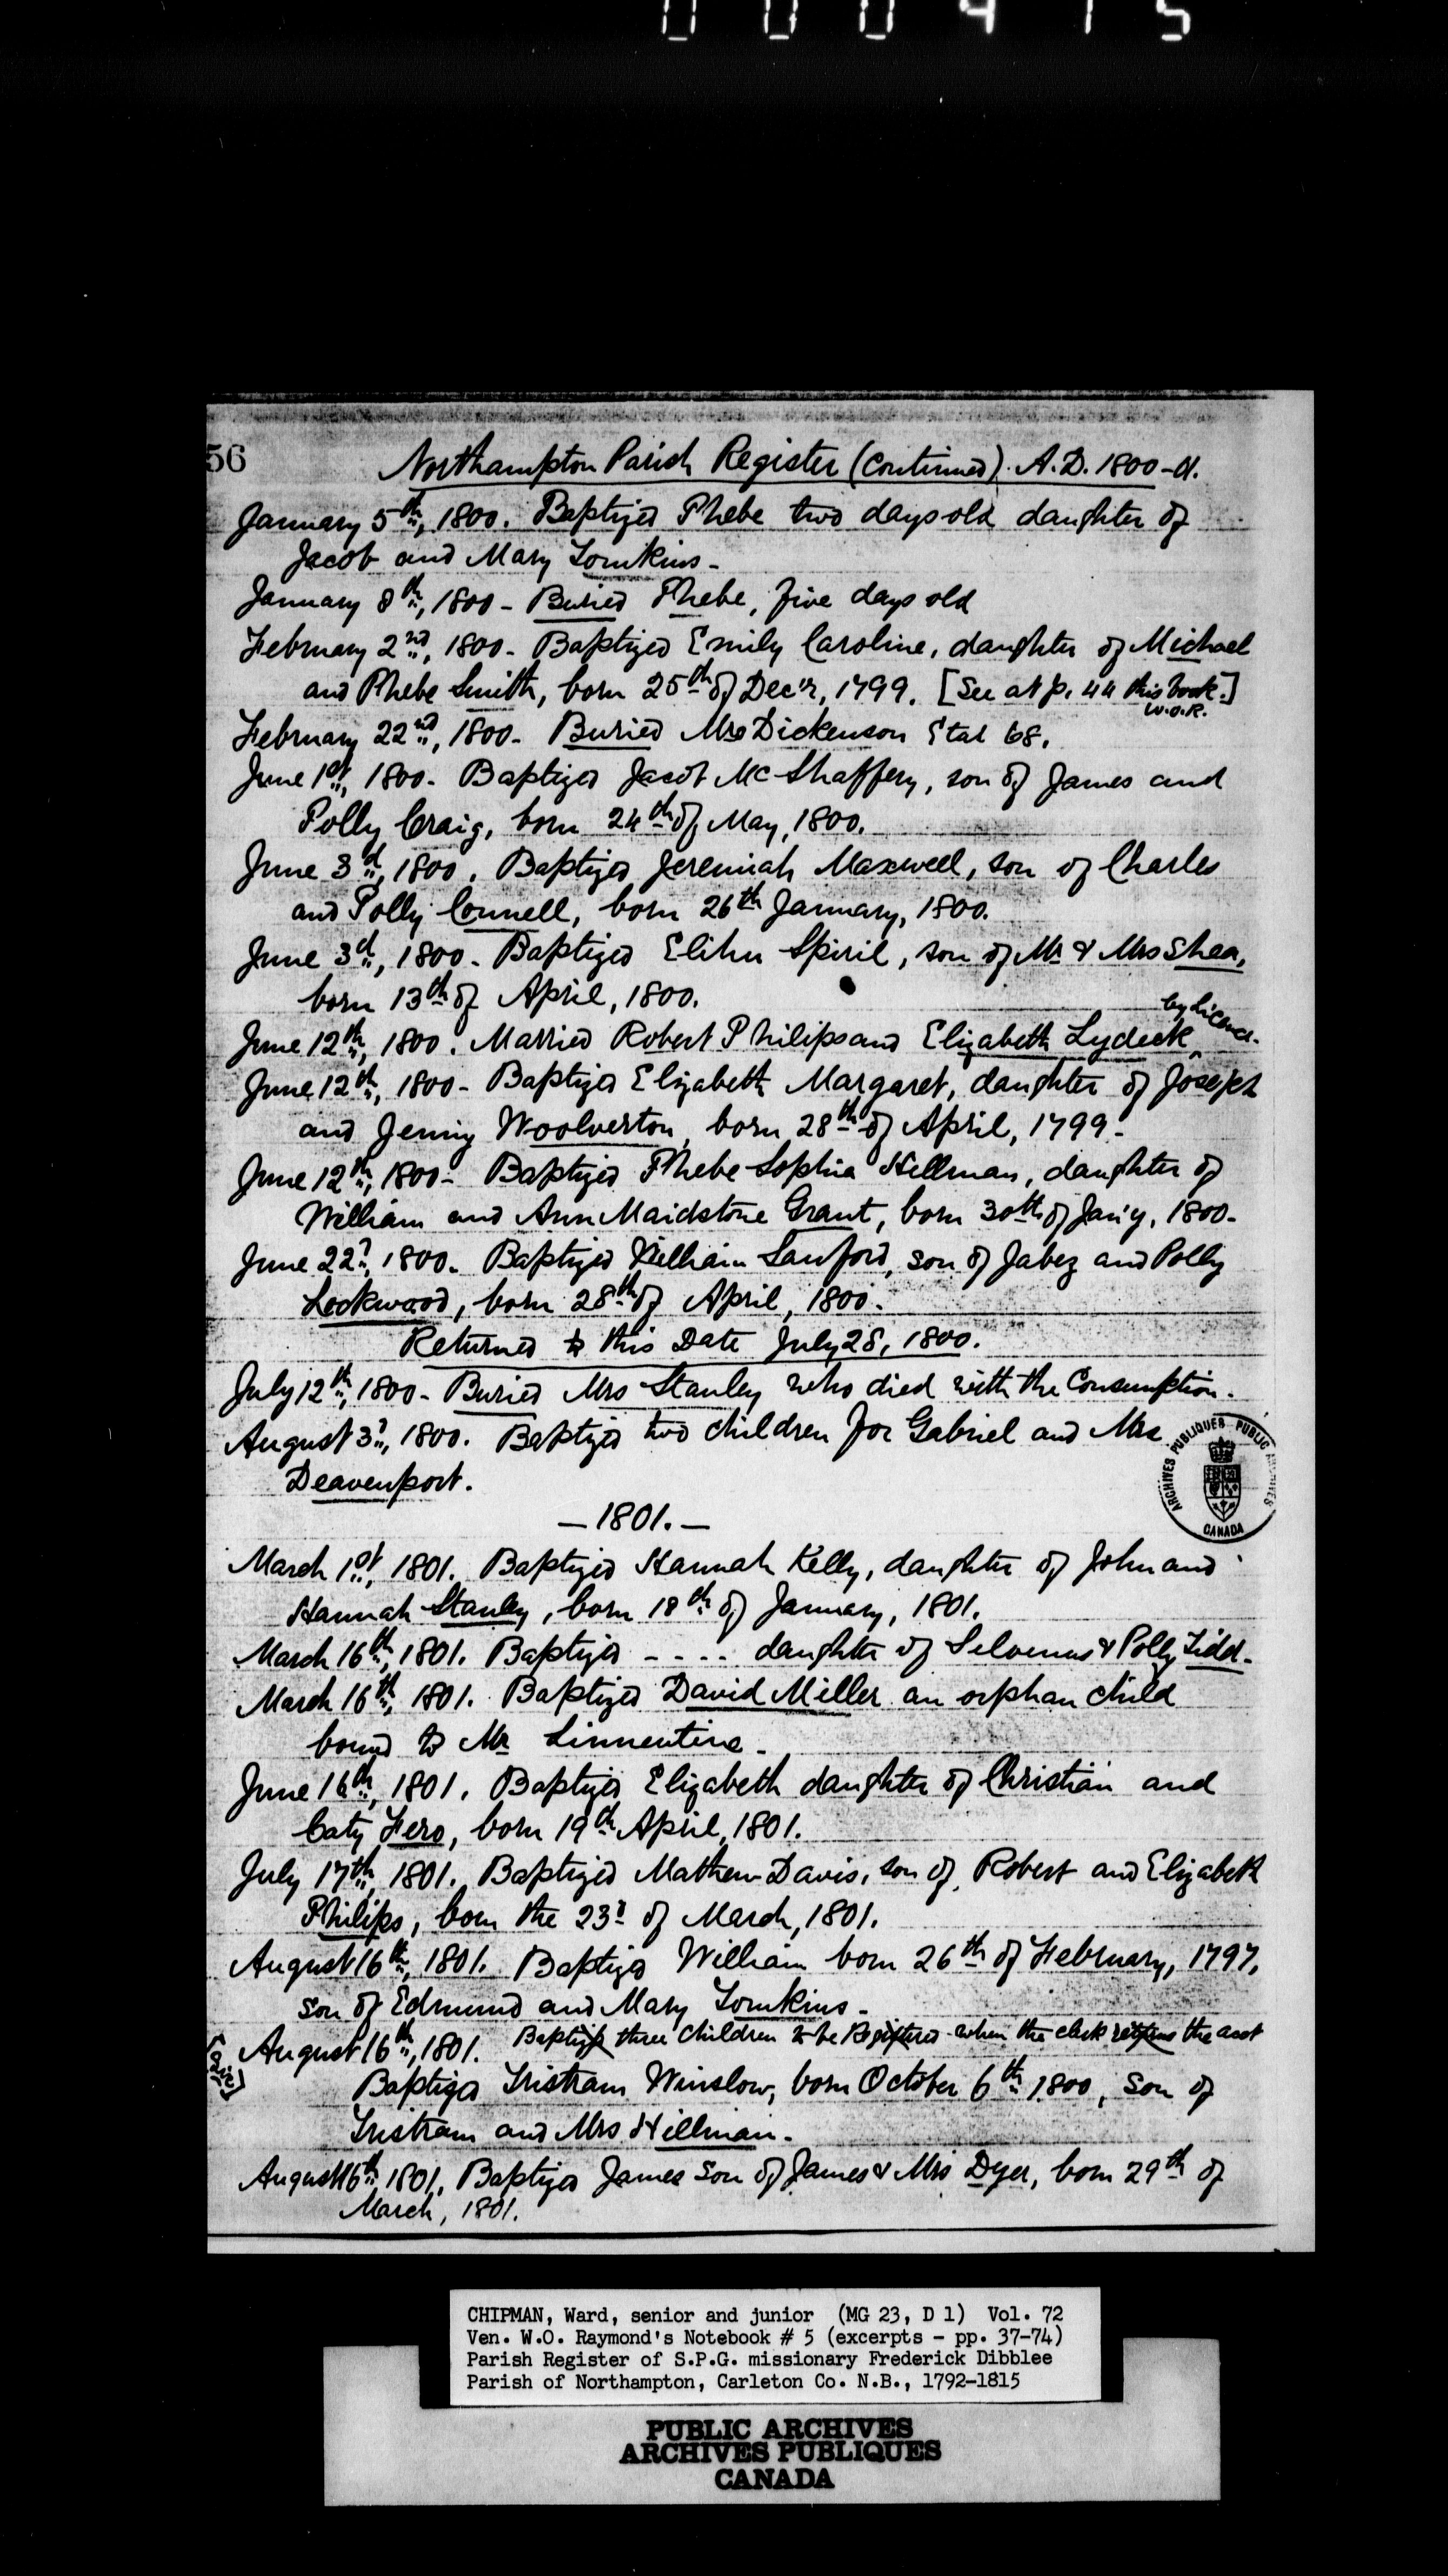 000415
56
Northampton Parish Register (continued). A.D. 1800-01.
January 5th, 1800. Baptized Phebe two days old daughter of
Jacob and Mary Tomkins-
January 8th, 1800 - Buried Phebe, five days old
February 2nd, 1800 - Baptized Emily Caroline, daughter of Michael
and Phebe Smith, born 25th of Dec'r, 1799. [See at p. 44 this book.]
W.O.R.
February 22nd, 1800 - Buried Mrs Dickenson Etat 68.
June 1st, 1800 - Baptized Jacob Mc Shaffery, son of James and
Polly Craig, born 24th of May, 1800.
June 3d, 1800. Baptized Jeremiah Maxwell, son of Charles
and Polly Connell, born 26th January, 1800.
June 3d, 1800 - Baptized Elihu Spiril, son of Mr & Mrs Shea,
born 13th of April, 1800.
by Licence.
June 12th, 1800. Married Robert Philips and Elizabeth Lydeck
June 12th, 1800 - Baptized Elizabeth Margaret, daughter of Joseph
and Jenny Woolverton, born 28th of April, 1799.
June 12th, 1800 - Baptized Phebe Sophia Hillman, daughter of
William and Ann Maidstone Grant, born 30th of Jan'y, 1800-
June 22d, 1800. Baptized William Sanford, son of Jabez and Polly
Lockwood, born 28th of April, 1800.
Returned to this Date July 28, 1800.
July 12th, 1800 - Buried Mrs Stanley who died with the Consumption.
August 3d, 1800. Baptized two children for Gabriel and Mrs
Deavenport.
ARCHIVES PUBLIQUES PUBLIC ARCHIVES
CANADA
- 1801. -
March 1st, 1801. Baptized Hannah Kelly, daughter of John and
Hannah Stanley, born 18th of January, 1801.
March 16th, 1801. Baptized - - - - daughter of Selvenus & Polly Tidd-
March 16th, 1801. Baptized David Miller an orphan child
bound to Mr Linnentine.
June 16th, 1801. Baptized Elizabeth daughter of Christian and
Caty Fero, born 19th April, 1801.
July 17th, 1801. Baptized Mathew Davis, son of Robert and Elizabeth
Philips, born the 23d of March, 1801.
August 16th, 1801. Baptized William born 26th of February, 1797,
son of Edmund and Mary Tomkins-
[sic] August 16th, 1801. Baptized three children to be Registered when the clerk returns the acct
Baptized Tristram Winslow, born October 6th 1800, son of
Tristram and Mrs Hillman.
August 16th, 1801. Baptized James son of James & Mrs Dyer, born 29th of
March, 1801.
CHIPMAN, Ward, senior and junior (MG 23, D 1) Vol. 72
Ven. W.O. Raymond's Notebook # 5 (excerpts - pp. 37-74)
Parish Register of S.P.G. missionary Frederick Dibblee
Parish of Northampton, Carleton Co. N.B., 1792-1815
PUBLIC ARCHIVES
ARCHIVES PUBLIQUES
CANADA